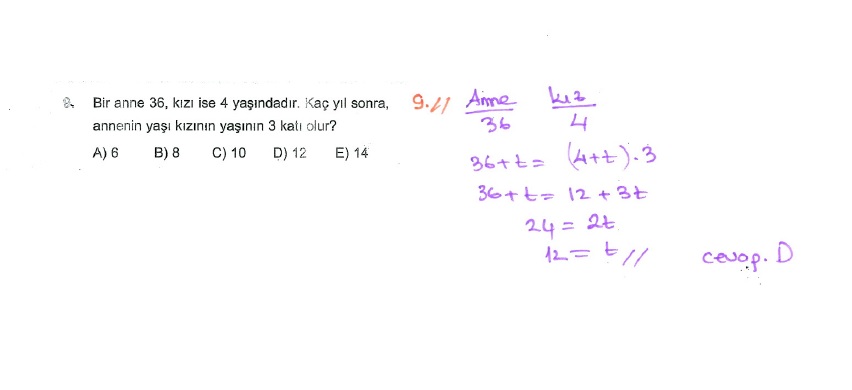 9. Bir anne 36, kızı ise 4 yaşındadır. Kaç yıl sonra,
annenin yaşı kızının yaşının 3 katı olur?
A) 6 B) 8 C) 10 D) 12 E) 14
9.// Anne kız
36 4
36+t= (4+t).3
36+t= 12+3t
24= 2t
12= t//
cevap. D